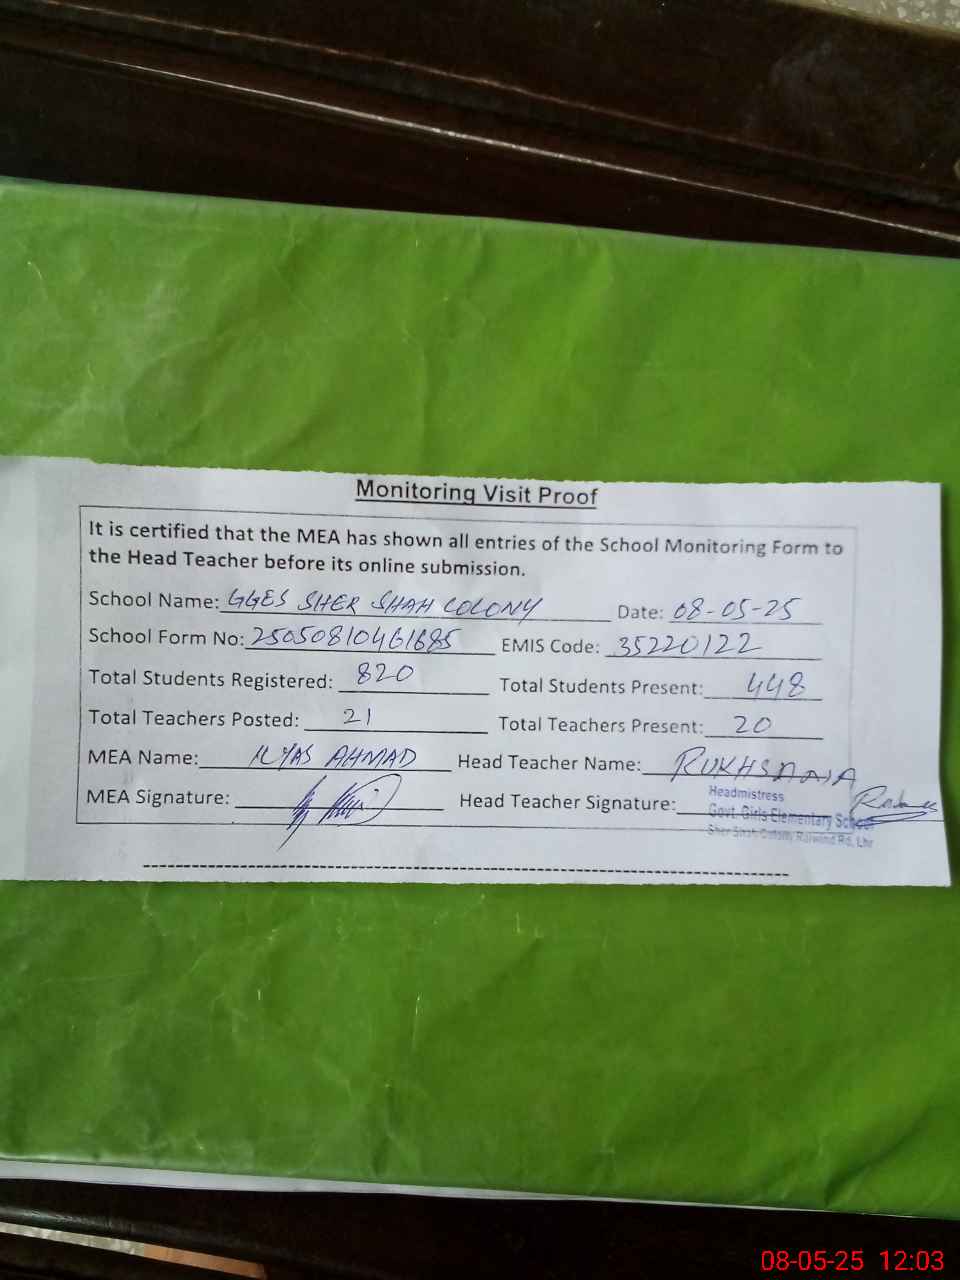 Monitoring Visit Proof
It is certified that the MEA has shown all entries of the School Monitoring Form to
the Head Teacher before its online submission.
School Name: GGES SHER SHAH COLONY Date: 08-05-25
School Form No: 25050810461685 EMIS Code: 35220122
Total Students Registered: 820 Total Students Present: 448
Total Teachers Posted: 21 Total Teachers Present: 20
MEA Name: ILYAS AHMAD Head Teacher Name: RUKHSANA
MEA Signature: Head Teacher Signature:
Headmistress
Govt. Girls Elementary School
Sher Shah Colony, Raiwind Rd, Lhr
08-05-25 12:03